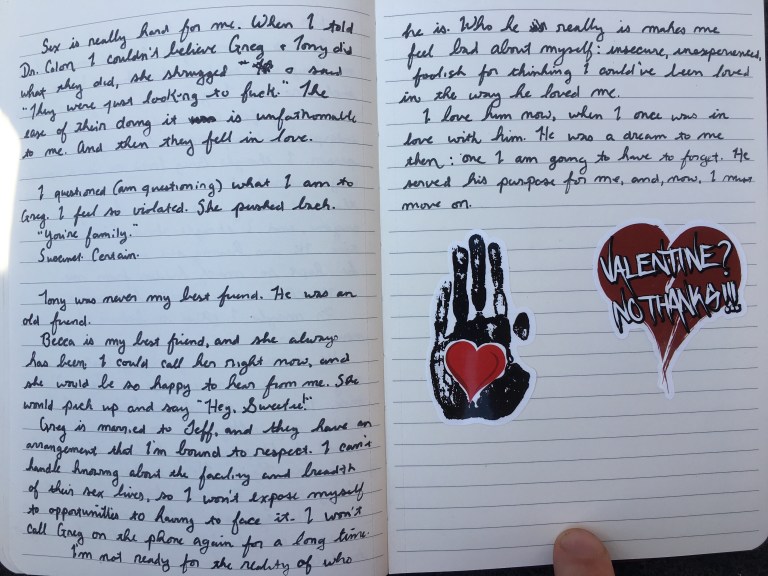 Sex is really hard for me. When I told
Dr. Colon I couldn't believe Greg + Tony did
what they did, she shrugged + said
"They were just looking to fuck." The
ease of their doing it is unfathomable
to me. And then they fell in love.
I questioned (am questioning) what I am to
Greg. I feel so violated. She pushed back.
"You're family."
Succinct. Certain.
Tony was never my best friend. He was an
old friend.
Becca is my best friend, and she always
has been. I could call her right now, and
she would be so happy to hear from me. She
would pick up and say "Hey, Sweetie!"
Greg is married to Jeff, and they have an
arrangement that I'm bound to respect. I can't
handle knowing about the facility and breadth
of their sex lives, so I won't expose myself
to opportunities to having to face it. I won't
call Greg on the phone again for a long time.
I'm not ready for the reality of who
he is. Who he really is makes me
feel bad about myself: insecure, inexperienced,
foolish for thinking I could've been loved
in the way he loved me.
I love him now, when I once was in
love with him. He was a dream to me
then: one I am going to have to forget. He
served his purpose for me, and, now, I must
move on.
VALENTINE?
NO THANKS!!!